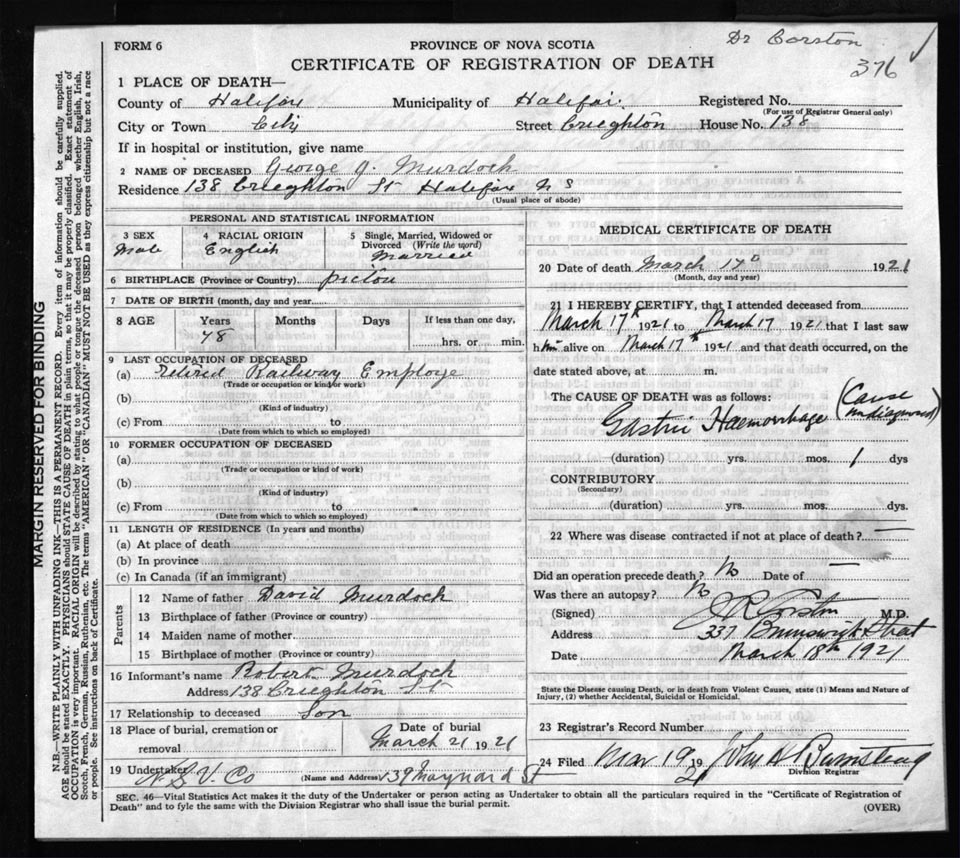 Dr Corston
376
FORM 6
PROVINCE OF NOVA SCOTIA
CERTIFICATE OF REGISTRATION OF DEATH
1 PLACE OF DEATH—
County of Halifax Municipality of Halifax. Registered No.
(For use of Registrar General only)
City or Town City Street Crieghton House No. 138
If in hospital or institution, give name
2 NAME OF DECEASED George J. Murdoch
Residence 138 Crieghton St Halifax N S
(Usual place of abode)
PERSONAL AND STATISTICAL INFORMATION
3 SEX
Male
4 RACIAL ORIGIN
English
5 Single, Married, Widowed or
Divorced (Write the word)
Married
6 BIRTHPLACE (Province or Country) Pictou
7 DATE OF BIRTH (month, day and year)
8 AGE
Years
78
Months
Days
If less than one day,
hrs. or min.
9 LAST OCCUPATION OF DECEASED
(a) Retired Railway Employe
(Trade or occupation or kind or work)
(b)
(Kind of industry)
(c) From to
(Date from which to which so employed)
10 FORMER OCCUPATION OF DECEASED
(a)
(Trade or occupation or kind of work)
(b)
(Kind of industry)
(c) From to
(Date from which to which so employed)
11 LENGTH OF RESIDENCE (In years and months)
(a) At place of death
(b) In province
(c) In Canada (if an immigrant)
Parents
12 Name of father David Murdoch
13 Birthplace of father (Province or country)
14 Maiden name of mother
15 Birthplace of mother (Province or country)
16 Informant's name Robert Murdoch
Address 138 Crieghton St
17 Relationship to deceased Son
18 Place of burial, cremation or
removal
Date of burial
March 21 1921
19 Undertaker N. S. U. Co (Name and Address) 139 Maynard St
MEDICAL CERTIFICATE OF DEATH
20 Date of death March 17th 1921
(Month, day and year)
21 I HEREBY CERTIFY, that I attended deceased from
March 17th 1921 to March 17 1921 that I last saw
him alive on March 17th 1921 and that death occurred, on the
date stated above, at m.
The CAUSE OF DEATH was as follows:
Gastric Haemorrhage (Cause undiagnosed)
(duration) yrs. mos. 1 dys
CONTRIBUTORY
(Secondary)
(duration) yrs. mos. dys.
22 Where was disease contracted if not at place of death? —
Did an operation precede death? No Date of —
Was there an autopsy? No
(Signed) J R Corston M.D.
Address 337 Brunswick Street
Date March 18th 1921
State the Disease causing Death, or in death from Violent Causes, state (1) Means and Nature of
Injury, (2) whether Accidental, Suicidal or Homicidal.
23 Registrar's Record Number
24 Filed Mar 19 1921 John A
Division Registrar
SEC. 46—Vital Statistics Act makes it the duty of the Undertaker or person acting as Undertaker to obtain all the particulars required in the "Certificate of Registration of
Death" and to fyle the same with the Division Registrar who shall issue the burial permit.
(OVER)
MARGIN RESERVED FOR BINDING
N.B.—WRITE PLAINLY WITH UNFADING INK—THIS IS A PERMANENT RECORD. Every item of information should be carefully supplied.
AGE should be stated EXACTLY. PHYSICIANS should STATE CAUSE OF DEATH in plain terms, so that it may be properly classified. Exact statement of
OCCUPATION is very important. RACIAL ORIGIN will be described by stating to what people or tongue the deceased person belonged whether English, Irish,
Scotch, French, German, Russian, Ruthenian, etc. The terms "AMERICAN" OR "CANADIAN" MUST NOT BE USED as they express citizenship but not a race
or people. See instructions on back of Certificate.